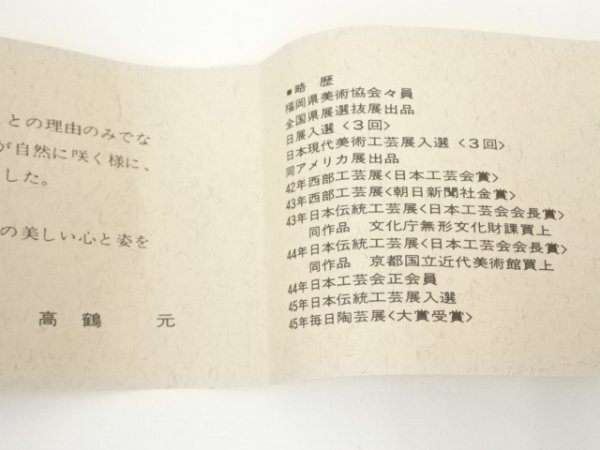 ことの理由のみでな
が自然に咲く様に、
した。
の美しい心と姿を
高鶴 元
■略歴
福岡県美術協会々員
全国県展選抜展出品
日展入選〈3回〉
日本現代美術工芸展入選〈3回〉
同アメリカ展出品
42年西部工芸展〈日本工芸会賞〉
43年西部工芸展〈朝日新聞社金賞〉
43年日本伝統工芸展〈日本工芸会会長賞〉
同作品 文化庁無形文化財課買上
44年日本伝統工芸展〈日本工芸会会長賞〉
同作品 京都国立近代美術館買上
44年日本工芸会正会員
45年日本伝統工芸展入選
45年毎日陶芸展〈大賞受賞〉